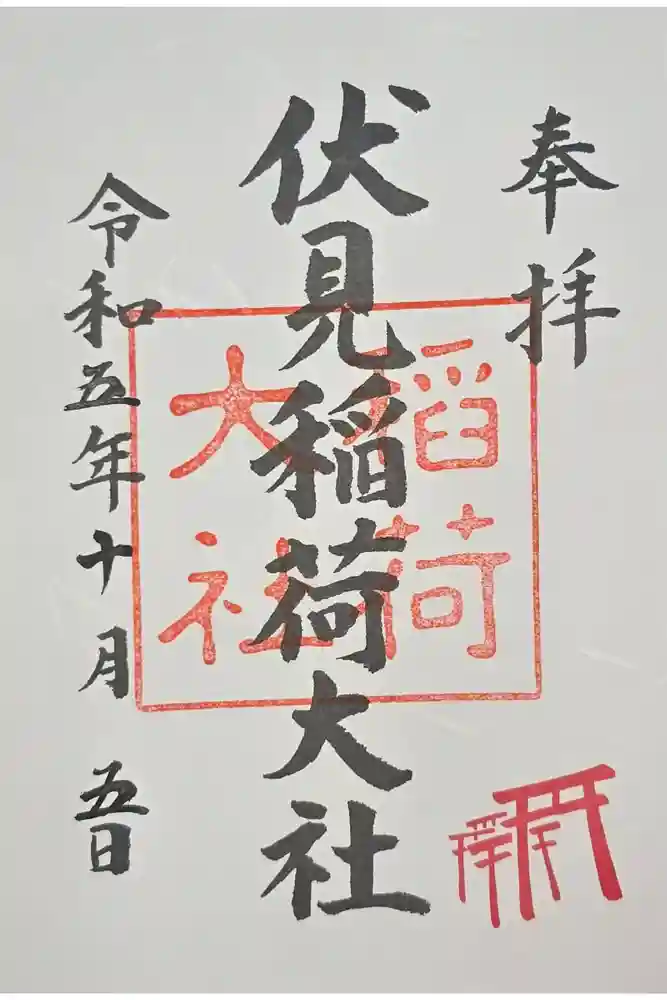 奉拝
伏見稲荷大社
稲荷
大社
令和五年十月五日